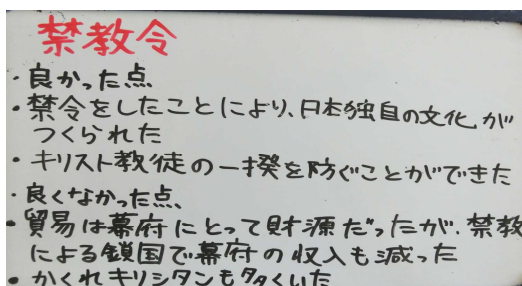 禁教令
・良かった点
・禁令をしたことにより、日本独自の文化が
つくられた
・キリスト教徒の一揆を防ぐことができた
・良くなかった点、
・貿易は幕府にとって財源だったが、禁教
による鎖国で幕府の収入も減った
・かくれキリシタンも多くいた